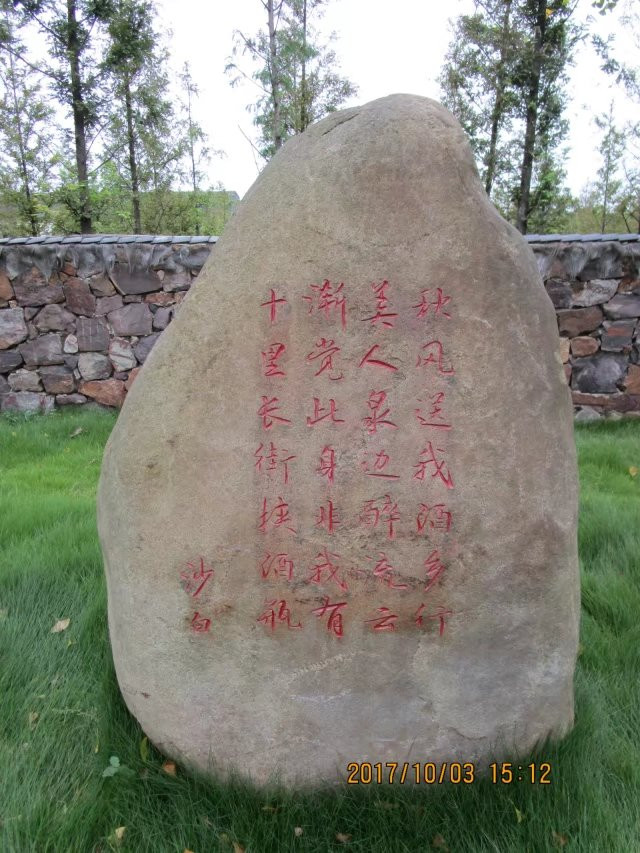 秋风送我酒乡行
美人泉边醉流云
渐觉此身非我有
十里长街挟酒瓶
沙白
2017/10/03 15:12